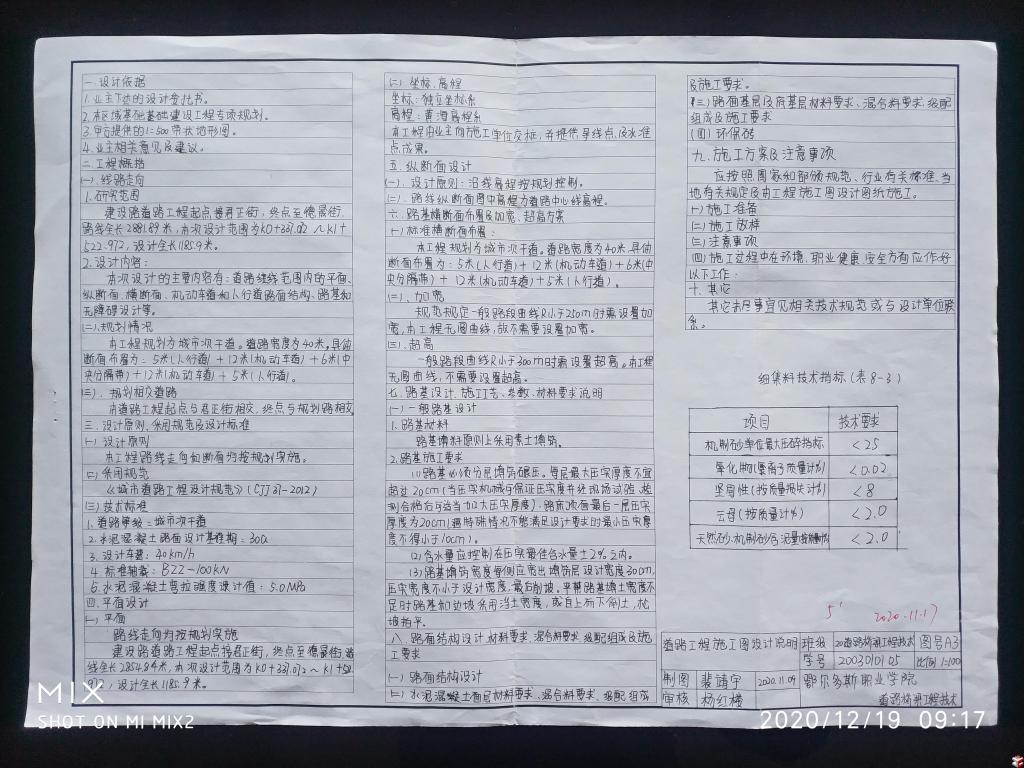 一.设计依据
1.业主下达的设计委托书。
2.本区域基础基础建设工程专项规划。
3.甲方提供的1:500带状地形图。
4.业主相关意见及建议。
二.工程概括
(一).线路走向
1.研究范围
建设路道路工程起点接君正街,终点至德晟街.
路线全长2881.89米,本次设计范围为K0+331.012～K1+
522.972,设计全长1185.9米。
2.设计内容:
本次设计的主要内容有:道路线范围内的平面.
纵断面.横断面.机动车道和人行道路面结构.路基和
无障碍设计等。
(二).规划情况
本工程规划为城市次干道。道路宽度为40米,具体
断面布置为:5米(人行道)+12米(机动车道)+6米(中
央分隔带)+12米(机动车道)+5米(人行道)。
(三).规划相交道路
本道路工程起点与君正街相交,终点与规划路相交
三.设计原则.采用规范及设计标准
(一)设计原则
本工程路线走向和断面均按规划实施。
(二)采用规范
《城市道路工程设计规范》(CJJ 37-2012)
(三)技术标准
1.道路等级:城市次干道
2.水泥混凝土路面设计基准期:30a
3.设计车速:40km/h
4.标准轴载:BZZ-100KN
5.水泥混凝土弯拉强度设计值:5.0MPa
四.平面设计
(一)平面
路线走向均按规划实施
建设路道路工程起点接君正街,终点至德晟街.路
线全长2854.84米,本次设计范围为K0+337.072～K1+52
2.972,设计全长1185.9米。
(二)坐标.高程
坐标:独立坐标系
高程:黄海高程系
本工程由业主向施工单位交桩,并提供导线点及水准
点成果。
五.纵断面设计
(一).设计原则:沿线高程按规划控制。
(二).路线纵断面图中高程为道路中心线高程。
六.路基横断面布置及加宽.超高方案
(一)标准横断面布置:
本工程规划为城市次干道。道路宽度为40米.具体
断面布置为:5米(人行道)+12米(机动车道)+6米(中
央分隔带)+12米(机动车道)+5米(人行道)。
(二).加宽
规范规定一般路段曲线R小于250m时需设置加
宽,本工程无圆曲线,故不需要设置加宽。
(三).超高
一般路段曲线R小于300m时需设置超高。本工程
无圆曲线,不需要设置超高。
七.路基设计.施工工艺.参数.材料要求说明
(一)一般路基设计
1.路基材料
路基填料原则上采用素土填筑。
2.路基施工要求
(1)路基必须分层填筑碾压。每层最大压实厚度不宜
超过20cm(当压实机械与保证压实度并经现场试验.检
测合格后可适当加大压实厚度).路床顶面最后一层压实
厚度为20cm(遇特殊情况不能满足设计要求时最小压实厚
度不得小于10cm)。
(2)含水量应控制在压实最佳含水量±2%之内。
(3)路基填筑宽度每侧应宽出填筑层设计宽度30cm,
压实宽度不小于设计宽度,最后削坡。平幕路基填土宽度不
足时路基和边坡采用当土宽度,或自上而下倒土,松
填捣平。
八.路面结构设计.材料要求.混合料要求.级配组成及施
工要求
(一)路面结构设计
(二)水泥混凝土面层材料要求.混合料要求.级配组成
及施工要求。
(三)路面基层及底基层材料要求.混合料要求.级配
组成及施工要求
(四)环保砖
九.施工方案及注意事项
应按照国家和部颁规范.行业有关标准.当
地有关规定及本工程施工图设计图纸施工。
(一)施工准备
(二)施工放样
(三)注意事项
(四)施工过程中在环境.职业健康.安全方面应作好
以下工作:
十.其它
其它未尽事宜见相关技术规范或与设计单位联
系。
细集料技术指标(表8-3)
项目 技术要求
机制砂单位最大压碎指标 <25
氯化物(氯离子质量计%) <0.02
坚固性(按质量损失计%) <8
云母(按质量计%) <2.0
天然砂.机制砂含泥量 <2.0
5'
2020.11.17
道路工程施工图设计说明 班级 20道路桥梁工程技术 图号A3
学号 2003010105 比例 1:100
制图 裴靖宇 2020.11.09 鄂尔多斯职业学院
审核 杨红横 道路桥梁工程技术
MIX
SHOT ON MI MIX2
2020/12/19 09:17